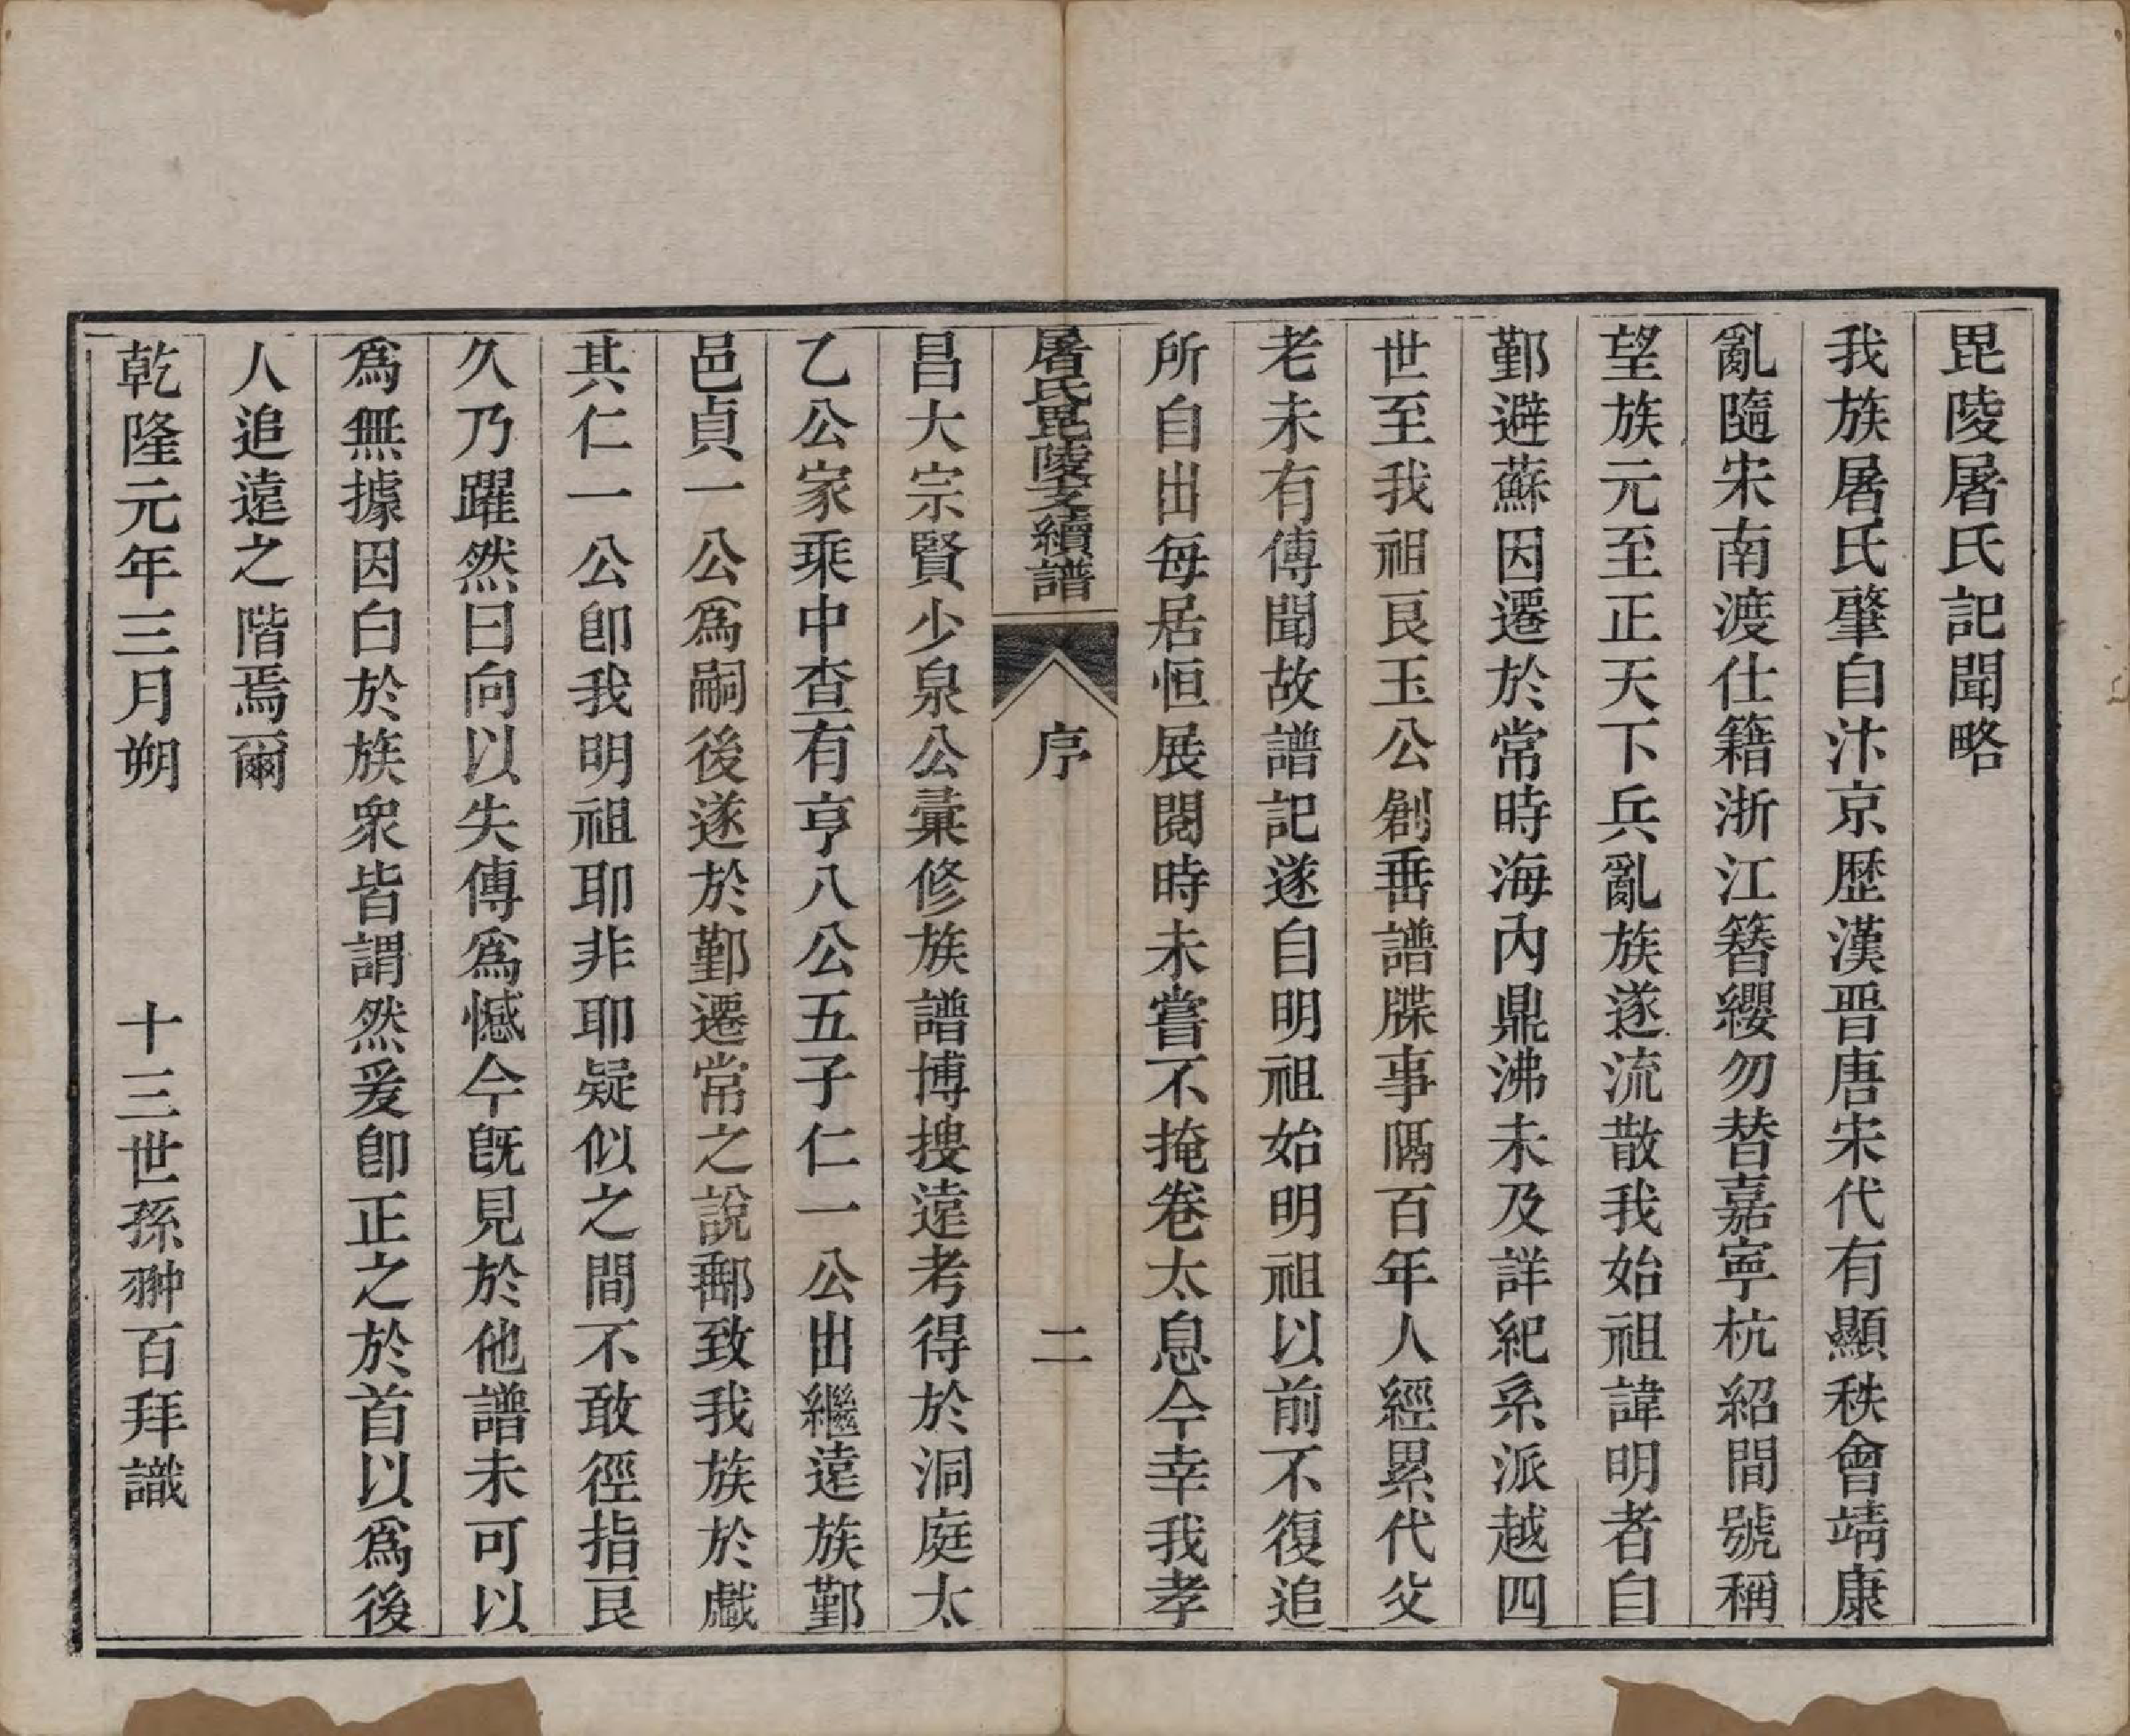 毘陵屠氏記聞略
我族屠氏肇自汴京歷漢晋唐宋代有顯秩會靖康
亂隨宋南渡仕籍浙江簪纓勿替嘉寧杭紹間號稱
望族元至正天下兵亂族遂流散我始祖諱明者自
鄞避蘇因遷於常時海內鼎沸未及詳紀系派越四
世至我祖艮玉公創垂譜牒事隔百年人經累代父
老未有傳聞故譜記遂自明祖始明祖以前不復追
所自出每居恒展閱時未嘗不掩卷太息今幸我孝
屠氏毘陵支續譜 序 二
昌大宗賢少泉公彙修族譜博搜遠考得於洞庭太
乙公家乘中查有亨八公五子仁一公出繼遠族鄞
邑貞一公為嗣後遂於鄞遷常之說郵致我族於戲
其仁一公卽我明祖耶非耶疑似之間不敢徑指艮
久乃躍然曰向以失傳為憾今旣見於他譜未可以
為無據因白於族衆皆謂然爰卽正之於首以為後
人追遠之階焉爾
乾隆元年三月朔 十三世孫翀百拜識